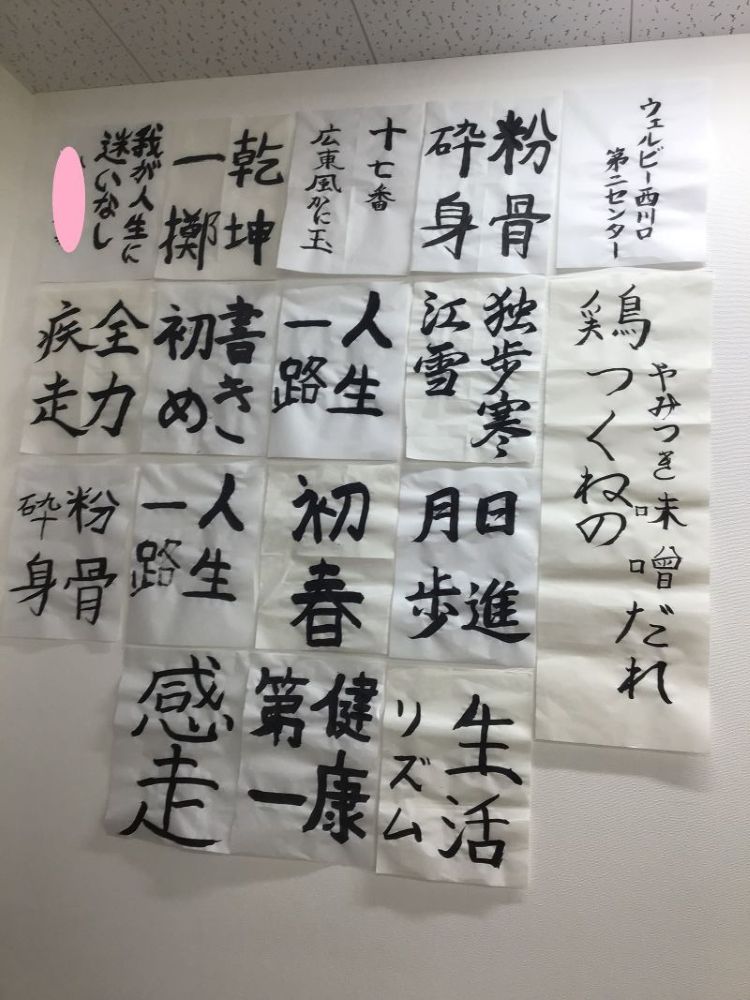 ウェルビー西川口
第二センター
粉骨
砕身
十七番
広東風かに玉
乾坤
一擲
我が人生に
迷いなし
やみつき味噌だれ
鶏つくねの
独歩寒
江雪
人生
一路
書き
初め
全力
疾走
日進
月歩
初春
人生
一路
粉骨
砕身
生活
リズム
健康
第一
感走